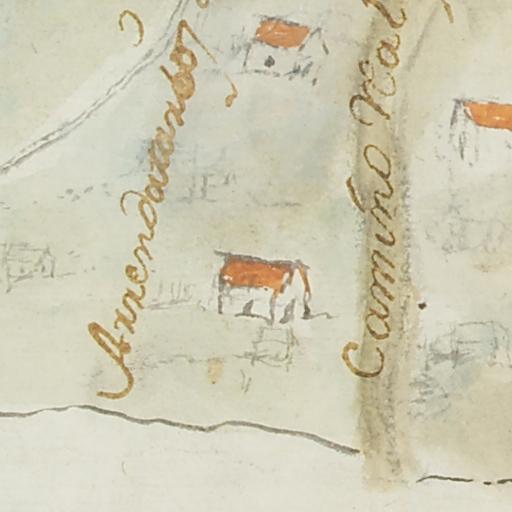 Arrendatarios
Camiño Real